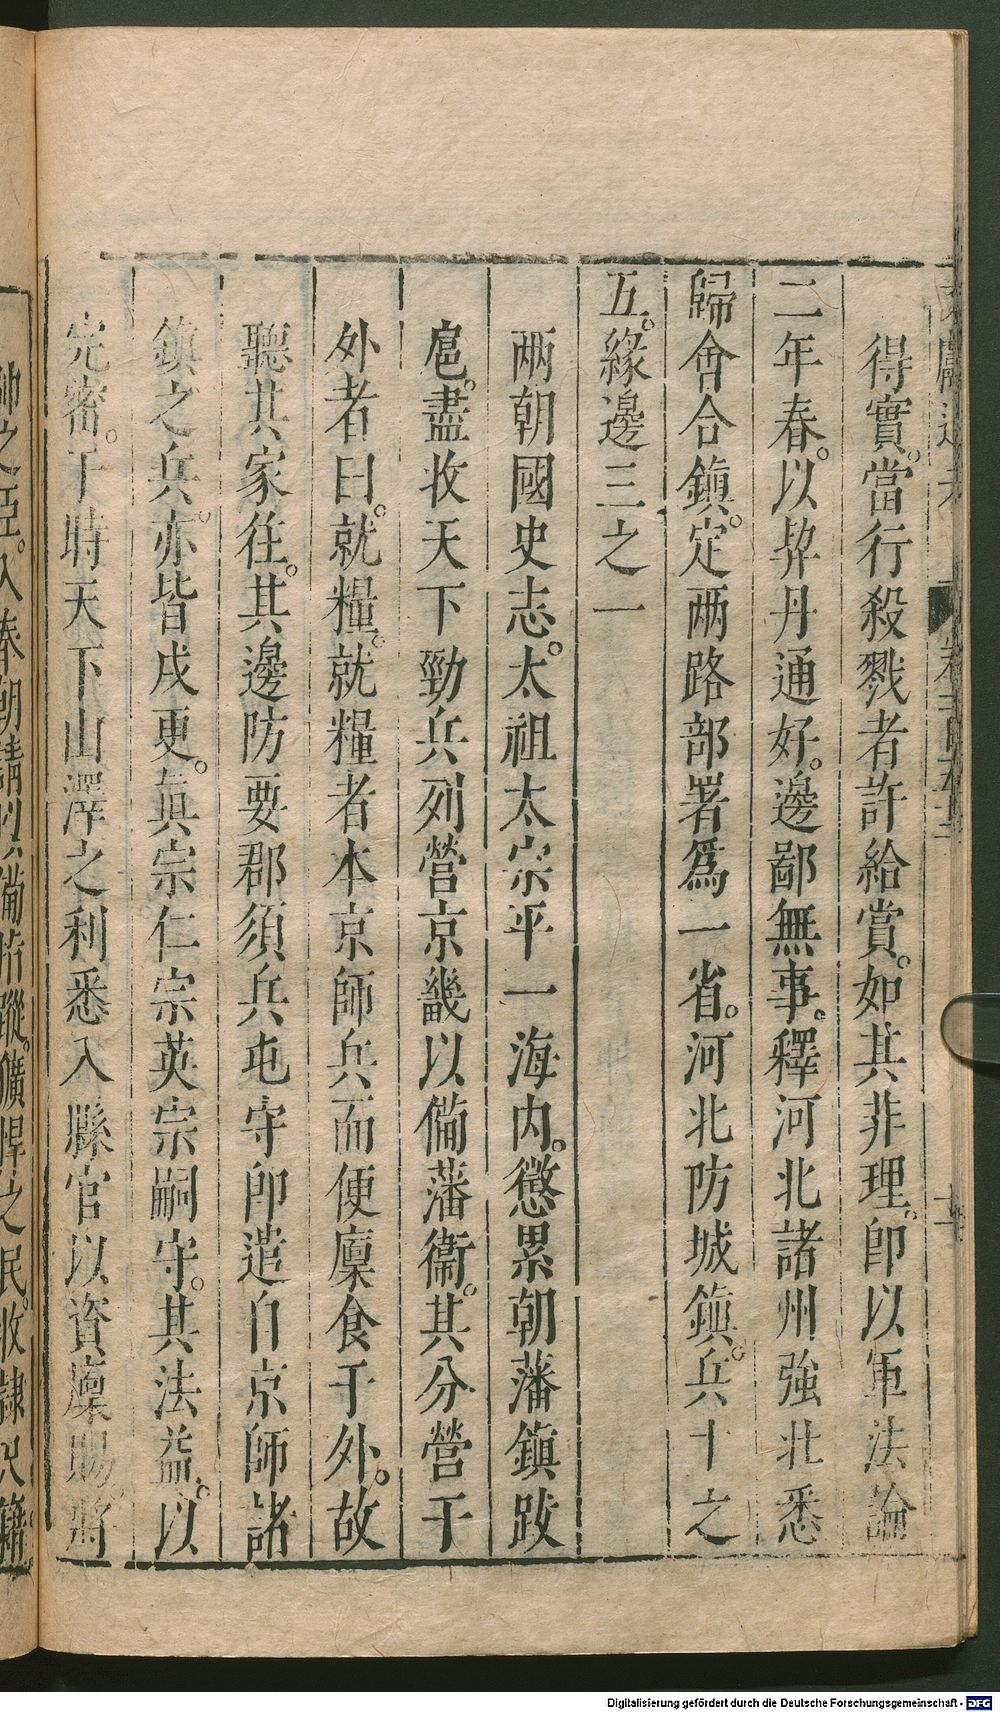 得實。當行殺戮者許給賞。如其非理。卽以軍法論
二年春。以契丹通好。邊鄙無事。釋河北諸州強壯悉
歸會合鎭。定两路部署爲一省。河北防城鎭。兵十之
五。緣邊三之一
两朝國史志。太祖太宗平一海内。懲累朝藩鎭跋
扈。盡收天下勁兵列營京畿以備藩衞。其分營于
外者曰。就糧。就糧者本京師兵而便廩食于外。故
聽其家往。其邊防要郡須兵屯守卽遣自京師諸
鎮之兵。亦皆戍更。眞宗仁宗英宗嗣守。其法益。以
完密。于時天下山澤之利悉入縣官以資廩賜將
帥之臣。入奉朝請以備指蹤。獷悍之民。收隷尺籍
Digitalisierung gefördert durch die Deutsche Forschungsgemeinschaft - DFG